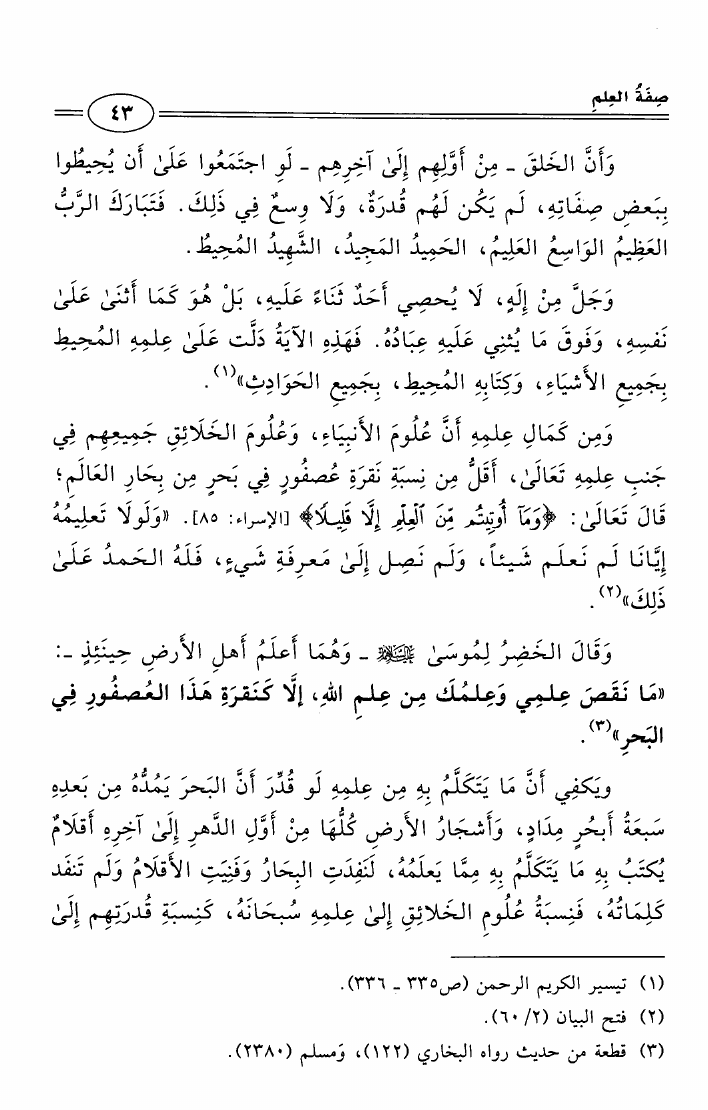 صِفَةُ العِلمِ
٤٣
وَأَنَّ الخَلقَ - مِنْ أَوَّلِهِم إِلَىٰ آخِرِهِم - لَوِ اجتَمَعُوا عَلَىٰ أَن يُحِيطُوا
بِبَعضِ صِفَاتِهِ، لَم يَكُن لَهُم قُدرَةٌ، وَلَا وِسعٌ فِي ذَلِكَ. فَتَبَارَكَ الرَّبُّ
العَظِيمُ الوَاسِعُ العَلِيمُ، الحَمِيدُ المَجِيدُ، الشَّهِيدُ المُحِيطُ.
وَجَلَّ مِنْ إِلَهٍ، لَا يُحصِي أَحَدٌ ثَنَاءً عَلَيهِ، بَلْ هُوَ كَمَا أَثنَىٰ عَلَىٰ
نَفسِهِ، وَفَوقَ مَا يُثنِي عَلَيهِ عِبَادُهُ. فَهَذِهِ الآيَةُ دَلَّت عَلَىٰ عِلمِهِ المُحِيطِ
بِجَمِيعِ الأَشيَاءِ، وَكِتَابِهِ المُحِيطِ، بِجَمِيعِ الحَوَادِثِ»(١).
وَمِن كَمَالِ عِلمِهِ أَنَّ عُلُومَ الأَنبِيَاءِ، وَعُلُومَ الخَلَائِقِ جَمِيعِهِم فِي
جَنبِ عِلمِهِ تَعَالَىٰ، أَقَلُّ مِن نِسبَةِ نَقرَةِ عُصفُورٍ فِي بَحرٍ مِن بِحَارِ العَالَمِ؛
قَالَ تَعَالَىٰ: ﴿وَمَآ أُوتِيتُم مِّنَ ٱلْعِلْمِ إِلَّا قَلِيلًا﴾ [الإسراء: ٨٥]. «وَلَولَا تَعلِيمُهُ
إِيَّانَا لَم نَعلَم شَيئاً، وَلَم نَصِل إِلَىٰ مَعرِفَةِ شَيءٍ، فَلَهُ الحَمدُ عَلَىٰ
ذَلِكَ»(٢).
وَقَالَ الخَضِرُ لِمُوسَىٰ - وَهُمَا أَعلَمُ أَهلِ الأَرضِ حِينَئِذٍ -:
«مَا نَقَصَ عِلمِي وَعِلمُكَ مِن عِلمِ اللهِ، إِلَّا كَنَقرَةِ هَذَا العُصفُورِ فِي
البَحرِ»(٣).
ويَكفِي أَنَّ مَا يَتَكَلَّمُ بِهِ مِن عِلمِهِ لَو قُدِّرَ أَنَّ البَحرَ يَمُدُّهُ مِن بَعدِهِ
سَبعَةُ أَبحُرٍ مِدَادٍ، وَأَشجَارُ الأَرضِ كُلُّهَا مِنْ أَوَّلِ الدَّهرِ إِلَىٰ آخِرِهِ أَقلَامٌ
يُكتَبُ بِهِ مَا يَتَكَلَّمُ بِهِ مِمَّا يَعلَمُهُ، لَنَفِدَتِ البِحَارُ وَفَنِيَتِ الأَقلَامُ وَلَم تَنفَد
كَلِمَاتُهُ، فَنِسبَةُ عُلُومِ الخَلَائِقِ إِلىٰ عِلمِهِ سُبحَانَهُ، كَنِسبَةِ قُدرَتِهِم إِلَىٰ
(١) تيسير الكريم الرحمن (ص٣٣٥ - ٣٣٦).
(٢) فتح البيان (٢/ ٦٠).
(٣) قطعة من حديث رواه البخاري (١٢٢)، وَمسلم (٢٣٨٠).